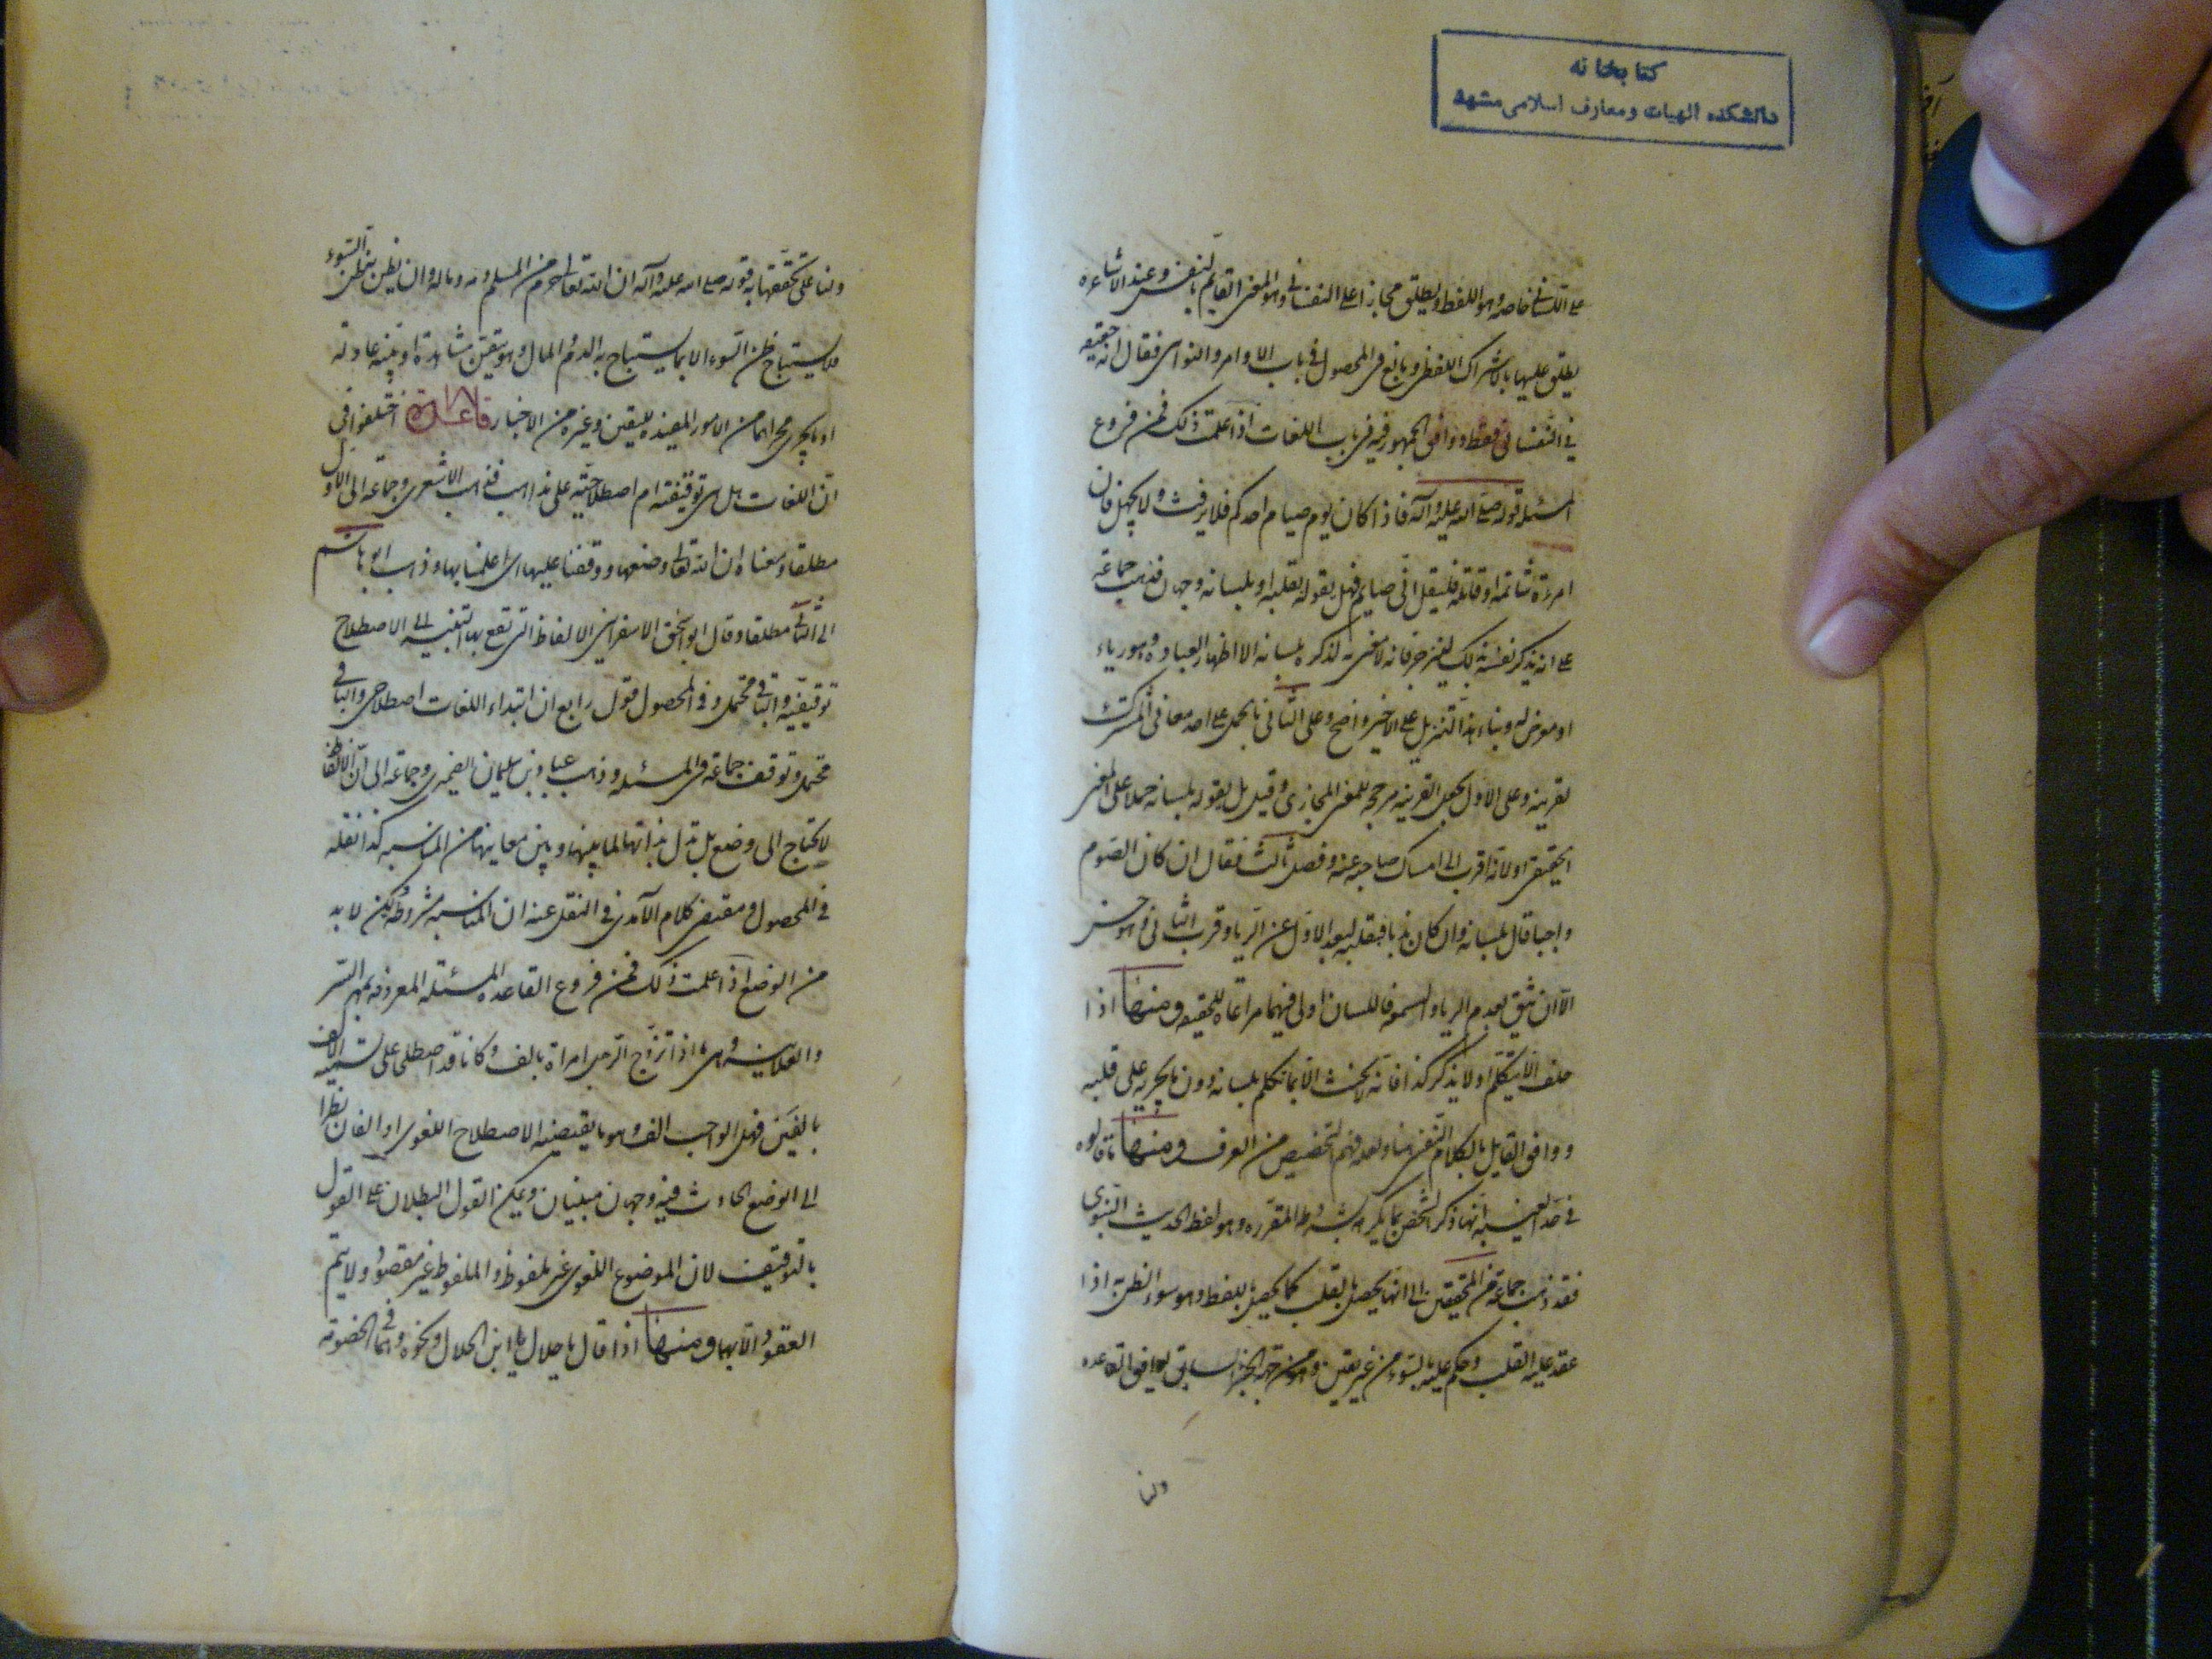 كتابخانه
دانشكده الهيات ومعارف اسلامى مشهد
على اللسانى خاصه وهو اللفظ ويطلق مجازا على النفسانى وهو المعنى القايم بالنفس وعند الاشاعره
يطلق عليهما بالاشتراك اللفظى وبالغ فى المحصول فى باب الاوامر والنواهى فقال انه حقيقه
فى النفسانى فقط ووافق الجمهور فيه فى باب اللغات اذا علمت ذلك فمن فروع
المسئله قوله صلى الله عليه وآله فاذا كان يوم صيام احدكم فلا يرفث ولا يجهل فان
امرءة شاتمه او قاتله فليقل انى صايم فهل يقوله بقلبه او بلسانه وجهان فذهب جماعه
على انه يذكر نفسه بذلك لينزجر فانه لا معنى لذكره بلسانه الا اظهار العباده وهو رياء
او موض له وبناء هذا التنزيل على الاخير واضح وعلى الثانى بالحمل على احد معانى المشترك
لقرينه وعلى الاول لجعل القرينه مرجحه للمعنى المجازى وقيل بل يقوله بلسانه حملا على المعنى
الحقيقى ولانه اقرب الى امساك صاحبه عنه وفصل ثالث فقال ان كان الصوم
واجبا قال بلسانه وان كان ندبا فبقلبه لبعد الاول عن الريا وقرب الثانى وهو حسن
الا ان يثق بعدم الريا والسمعه فاللسان اولى فيهما مراعاه للحقيقه ومنها اذا
حلف الا يتكلم او لا يذكر كذا فانه لا يحنث الا بما تكلم بلسانه دون ما يجريه على قلبه
ووافق القايل بالكلام النفسى هنا ولعله فهم التخصيص من العرف ومنها ما قالوه
فى حد الغيبه انها ذكر الشخص بما يكرهه بشروطه المقرره وهو لفظ الحديث النبوى
فقد ذهب جماعة من المحققين الى انها يحصل بالقلب كما يحصل باللفظ وهو سوء الظن به اذا
عقد عليه القلب وحكم عليه بالسوء من غير يقين وهو من جهة الخبر السابق يوافق القاعده
ولنا
ولنا على تحققها به قوله صلى الله عليه وآله ان الله تعالى حرم من المسلم دمه وماله وان يظن به ظن السوء
فلا يستباح ظن السوء الا بما يستباح به الدم والمال وهو بيقين مشاهدة او بينه عادله
او ما يجرى مجراهما من الامور المفيده لليقين وغيره من الاخبار قاعدة اختلفوا فى
ان اللغات هل هى توقيفته ام اصطلاحيه على مذاهب فذهب الاشعرى وجماعه الى الاول
مطلقا ومعناه ان الله تعالى وضعها ووقفنا عليها اى اعلمنا بها وذهب ابو هاشم
الى الثانى مطلقا وقال ابو اسحق الاسفراينى الالفاظ التى تقع بها التنبيه الى الاصطلاح
توقيفيه والباقى محتمل وفى المحصول قول رابع ان ابتداء اللغات اصطلاحى والباقى
محتمل وتوقف جماعه فى المسئله وذهب عباد بن سليمان الضيمرى وجماعه الى ان الالفاظ
لا تحتاج الى وضع بل تدل بذاتها لما بينها وبين معانيها من المناسبه كذا نقله
فى المحصول ومقتضى كلام الآمدى فى النقل عنه ان المناسبه مشروطه لكن لا بد
من الوضع اذا علمت ذلك فمن فروع القاعده المسئله المعروفه بمهر السر
والعلانيه وهى ما اذا تزوج الرجل امراة بالف وكانا قد اصطلحا على تسميه الالف
بالفين فهل الواجب الف وهو ما يقتضيه الاصطلاح اللغوى او الفان نظرا
الى الوضع الحادث فيه وجهان مبنيان ويمكن القول البطلان على القول
بالتوقيف لان الموضوع اللغوى غير ملفوظ والملفوظ غير مقصود ولا يتم
العقود الا بهما ومنها اذا قال يا حلال يا ابن الحلال ونحوه وهما فى الخصومه